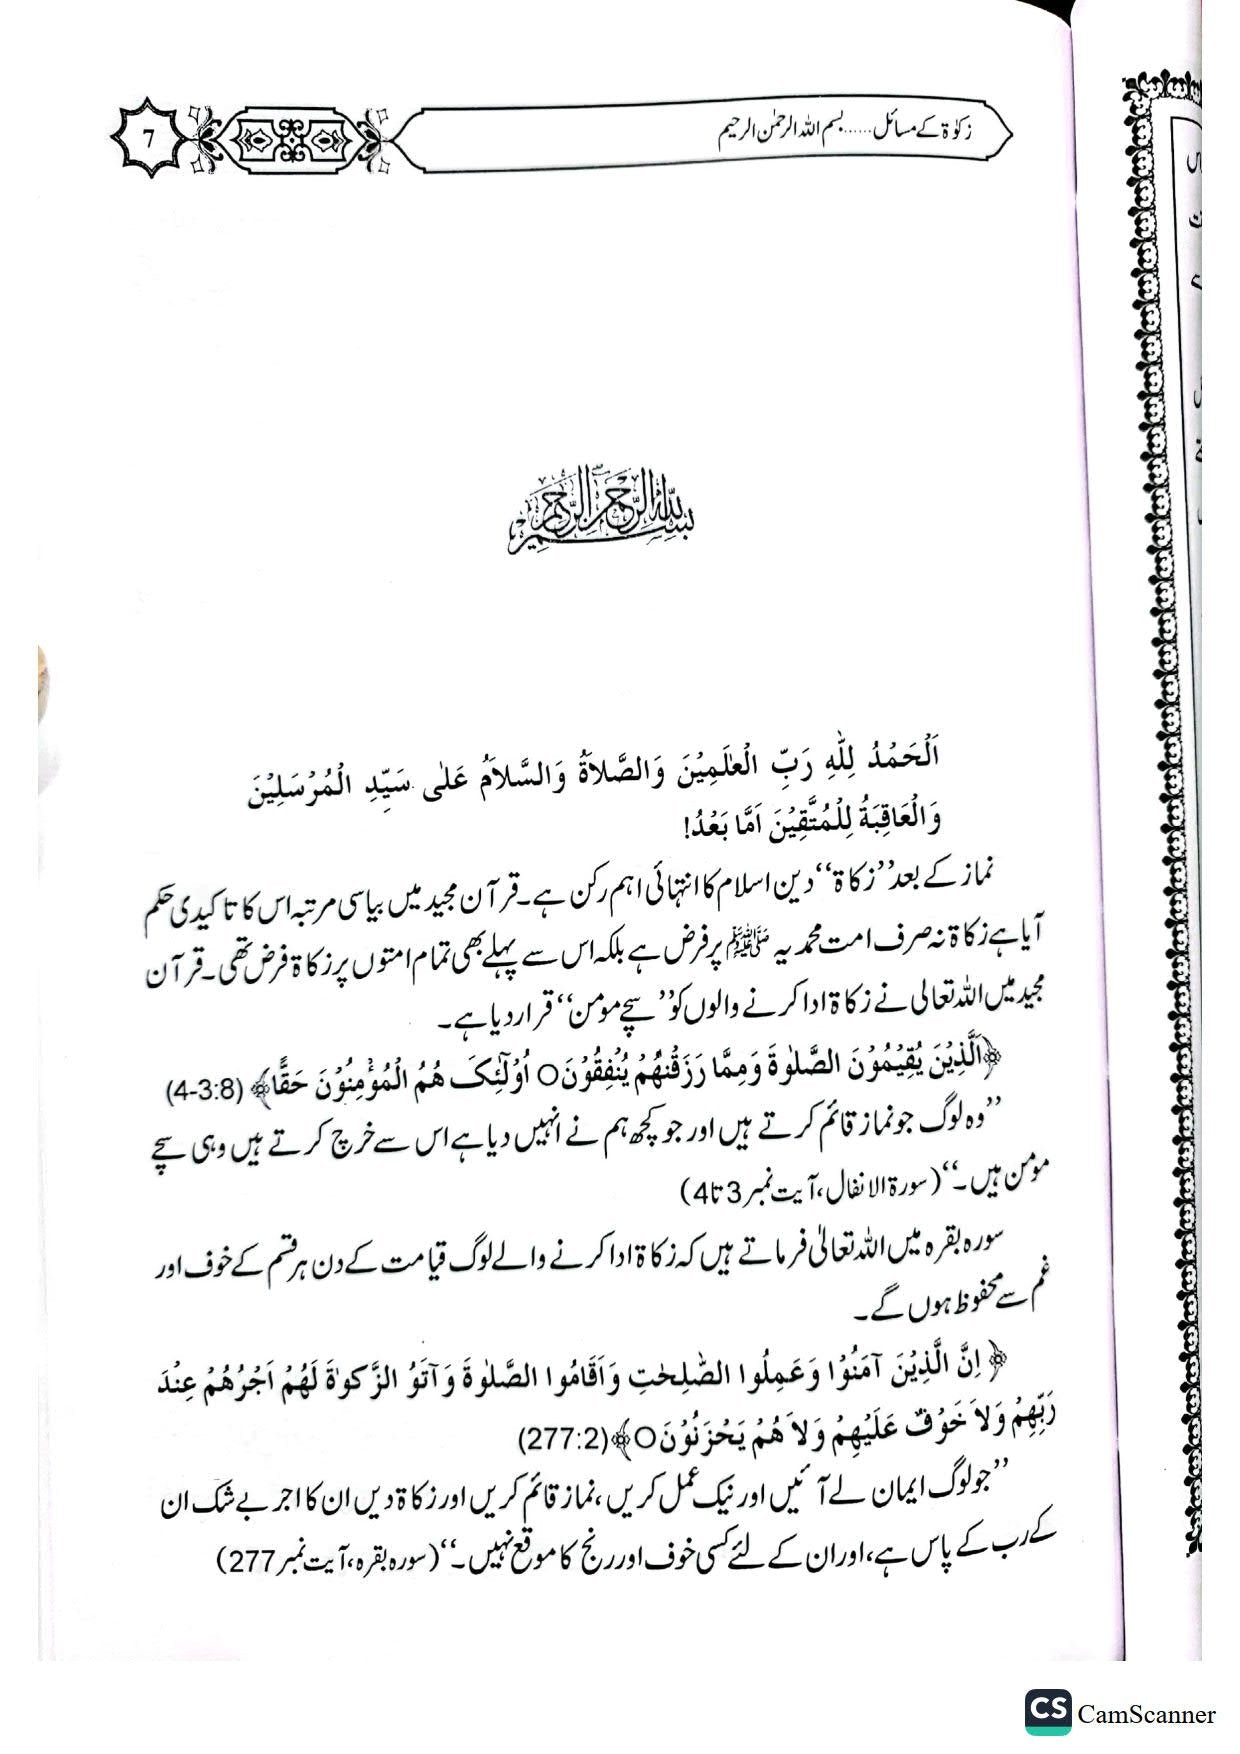 زکوٰۃ کے مسائل......بسم اللہ الرحمٰن الرحیم
7
بسم الله الرحمن الرحيم
اَلْحَمْدُ لِلّٰهِ رَبِّ الْعٰلَمِيْنَ وَالصَّلاَةُ وَالسَّلاَمُ عَلٰى سَيِّدِ الْمُرْسَلِيْنَ
وَالْعَاقِبَةُ لِلْمُتَّقِيْنَ اَمَّا بَعْدُ!
نماز کے بعد ’’زکاۃ‘‘ دین اسلام کا انتہائی اہم رکن ہے۔ قرآن مجید میں بیاسی مرتبہ اس کا تاکیدی حکم
آیا ہے زکاۃ نہ صرف امت محمدیہ ﷺ پر فرض ہے بلکہ اس سے پہلے بھی تمام امتوں پر زکاۃ فرض تھی۔ قرآن
مجید میں اللہ تعالی نے زکاۃ ادا کرنے والوں کو ’’سچے مومن‘‘ قرار دیا ہے۔
﴿اَلَّذِيْنَ يُقِيْمُوْنَ الصَّلٰوةَ وَمِمَّا رَزَقْنٰهُمْ يُنْفِقُوْنَ○ اُوْلٰٓئِكَ هُمُ الْمُؤْمِنُوْنَ حَقًّا﴾ (4-3:8)
’’وہ لوگ جو نماز قائم کرتے ہیں اور جو کچھ ہم نے انہیں دیا ہے اس سے خرچ کرتے ہیں وہی سچے
مومن ہیں۔‘‘ (سورۃ الانفال، آیت نمبر 3 تا 4)
سورہ بقرہ میں اللہ تعالیٰ فرماتے ہیں کہ زکاۃ ادا کرنے والے لوگ قیامت کے دن ہر قسم کے خوف اور
غم سے محفوظ ہوں گے۔
﴿اِنَّ الَّذِيْنَ آمَنُوْا وَعَمِلُوا الصّٰلِحٰتِ وَاَقَامُوا الصَّلٰوةَ وَآتَوُ الزَّكٰوةَ لَهُمْ اَجْرُهُمْ عِنْدَ
رَبِّهِمْ وَلاَ خَوْفٌ عَلَيْهِمْ وَلاَ هُمْ يَحْزَنُوْنَ○﴾ (277:2)
’’جو لوگ ایمان لے آئیں اور نیک عمل کریں، نماز قائم کریں اور زکاۃ دیں ان کا اجر بے شک ان
کے رب کے پاس ہے، اور ان کے لئے کسی خوف اور رنج کا موقع نہیں۔‘‘ (سورہ بقرہ، آیت نمبر 277)
CS CamScanner